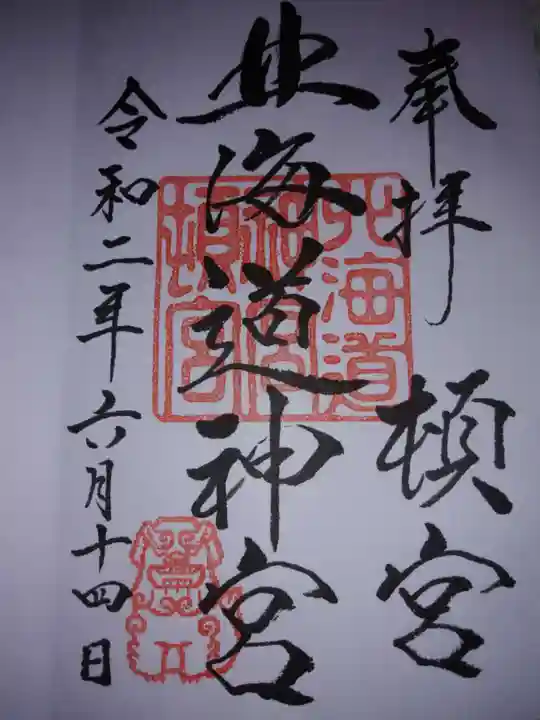 奉拝 頓宮
北海道神宮
令和二年六月十四日
北海道
神宮
頓宮